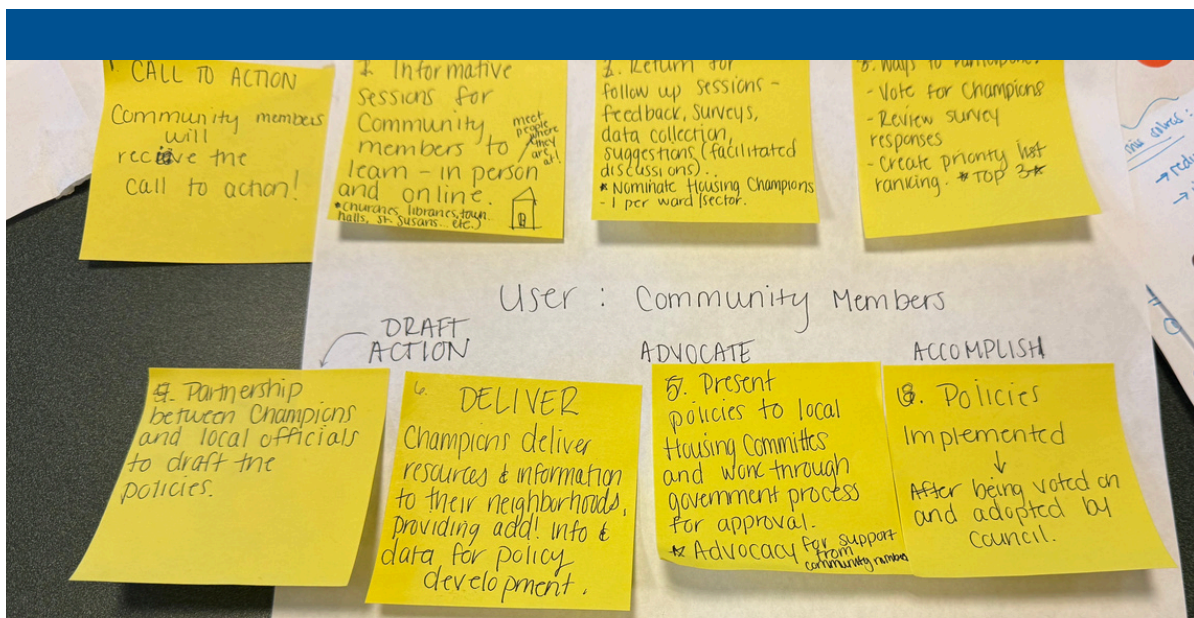 1 CALL TO ACTION
Community members
will
receive the
call to action!
2. Informative
sessions for
Community
members to
learn - in person
and online.
*Churches, libraries, town
halls, St. Susans. etc.)
meet
people
where
they
are
at!
Return for
follow up sessions -
feedback, surveys,
data collection,
suggestions (facilitated
discussions)..
* Nominate Housing Champions
- 1 per ward/sector.
Ways to participate:
- Vote for Champions
- Review survey
responses
- Create priority list
ranking. * TOP 3 *
User : Community Members
DRAFT
ACTION
ADVOCATE
ACCOMPLISH
Partnership
between Champions
and local officials
to draft the
policies.
6. DELIVER
Champions deliver
resources & information
to their neighborhoods,
providing add! info &
data for policy
development.
Present
policies to local
Housing Committes
and work through
government process
for approval.
* Advocacy for support
from
community members
8. Policies
Implemented
↓
After being voted on
and adopted by
Council.